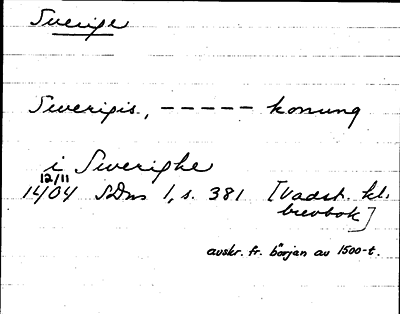 Sverige
Swerigis, ----- konung
i Swerighe
12/11
1404 SDns 1, s. 381 [Vadst. kl.
brevbok]
avskr. fr. början av 1500-t.